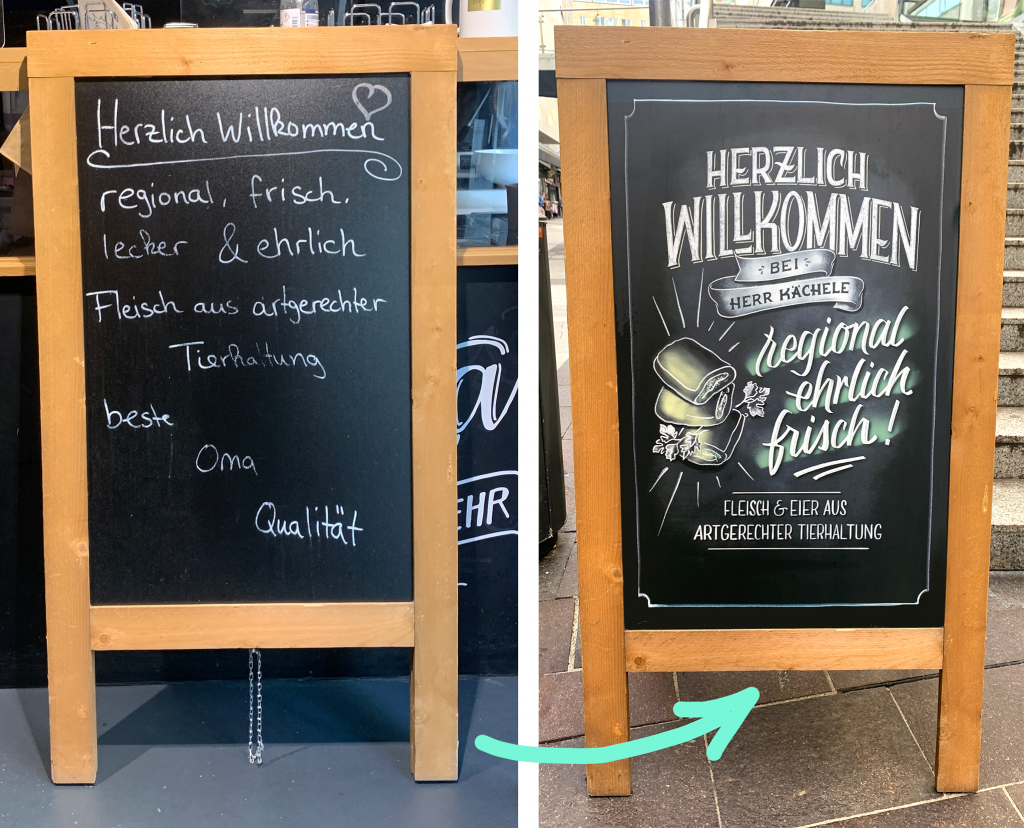 Herzlich Willkommen
regional, frisch,
lecker & ehrlich
Fleisch aus artgerechter
Tierhaltung
beste
Oma
Qualität
EHR
HERZLICH
WILLKOMMEN
BEI
HERR KÄCHELE
regional
ehrlich
frisch!
FLEISCH & EIER AUS
ARTGERECHTER TIERHALTUNG